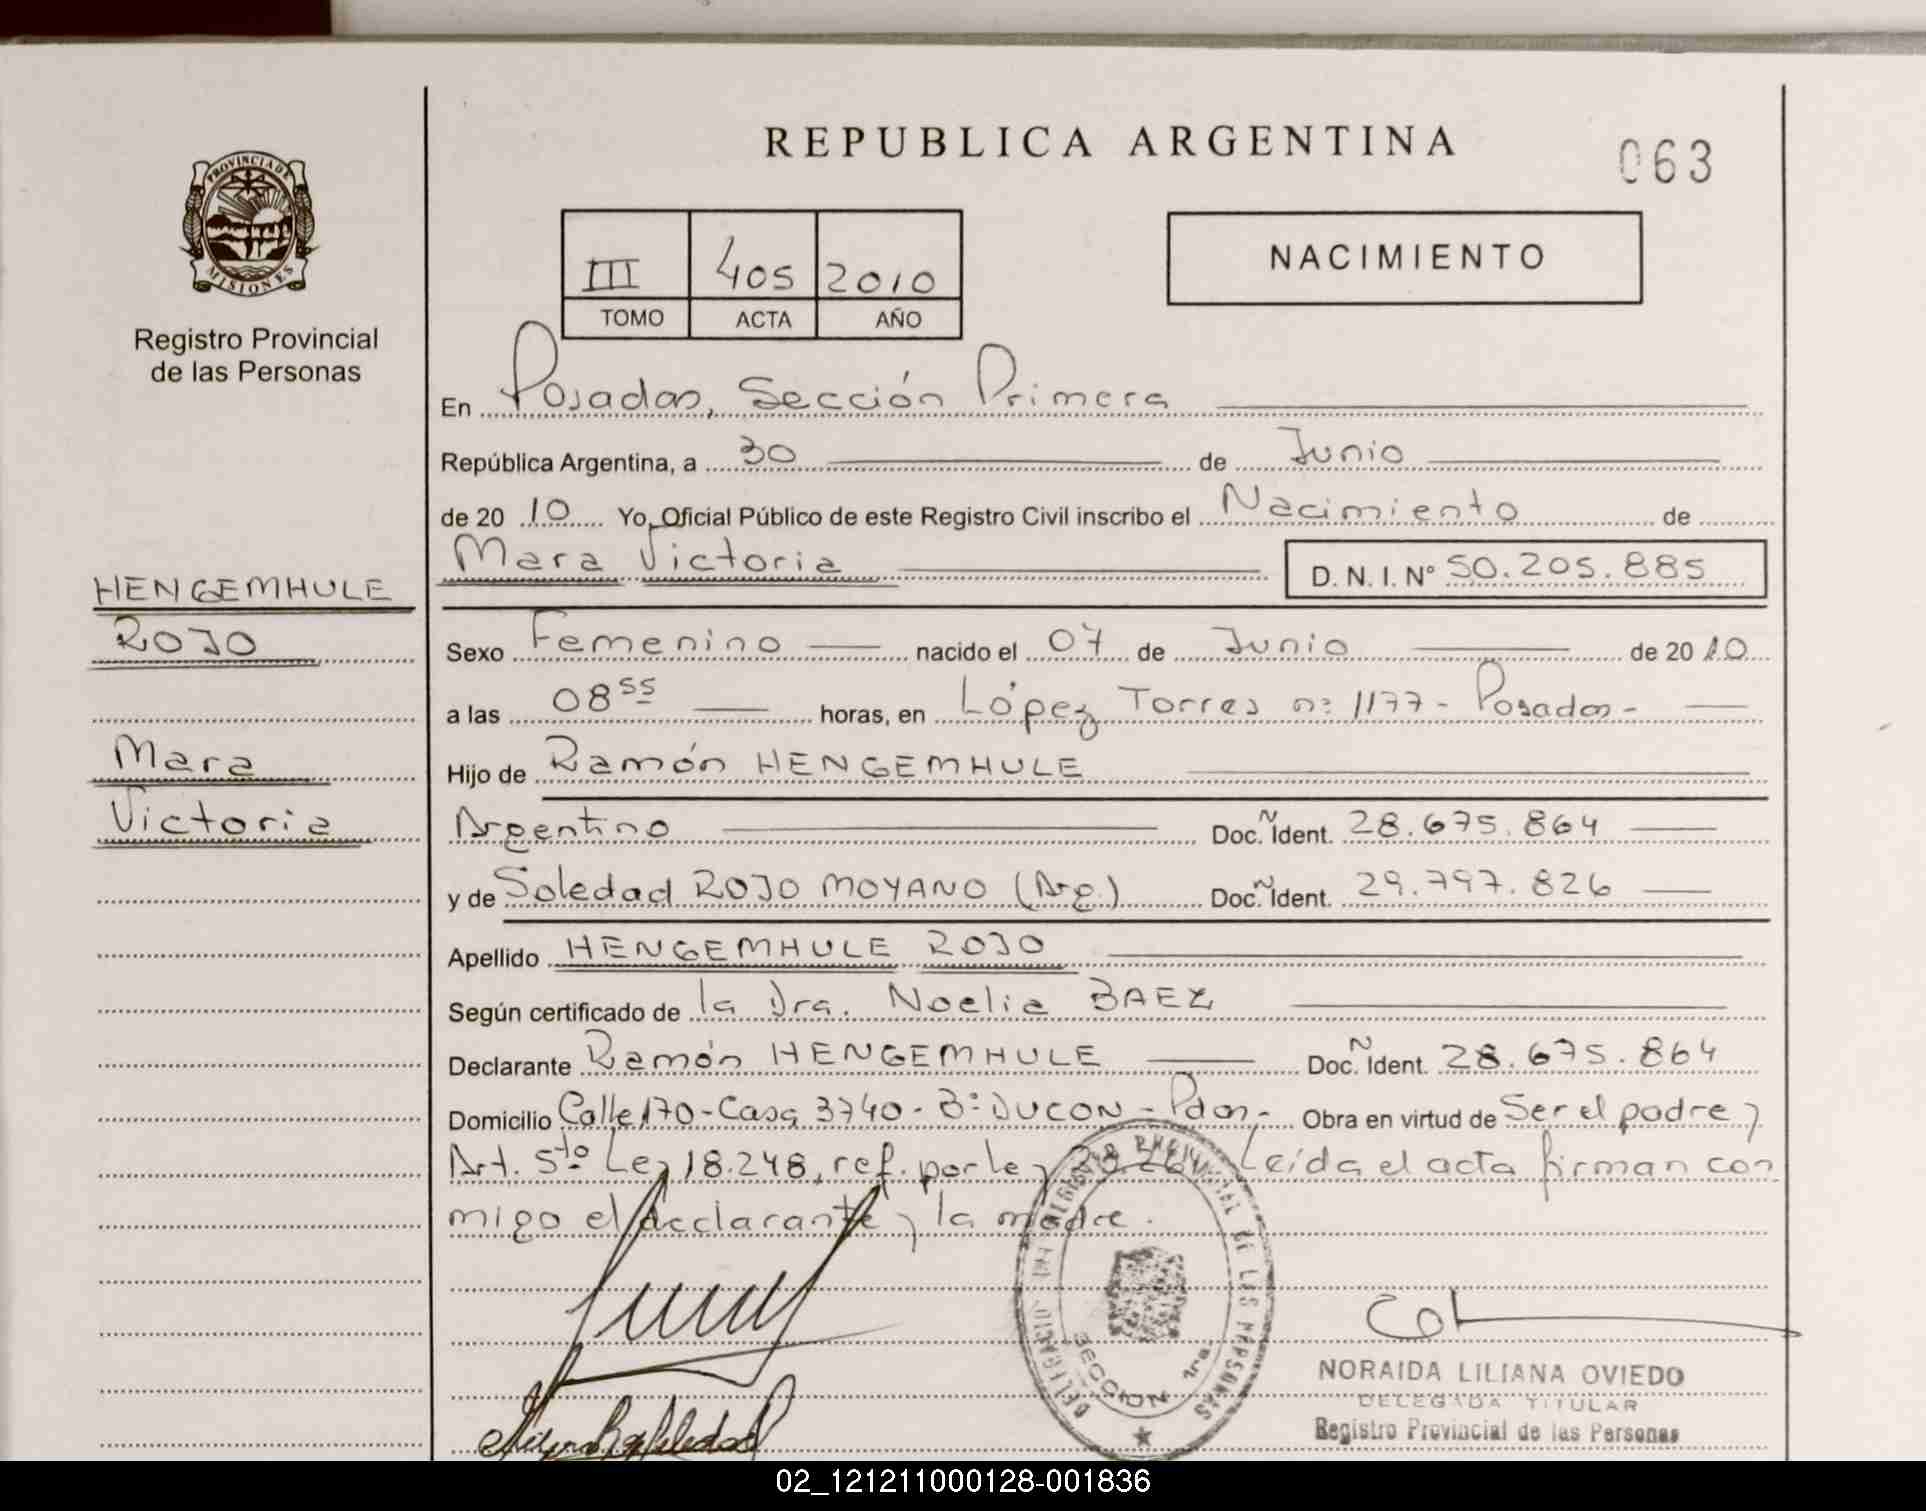 REPUBLICA ARGENTINA
063
PROVINCIA DE
MISIONES
Registro Provincial
de las Personas
III 405 2010
TOMO ACTA AÑO
NACIMIENTO
En Posadas, Sección Primera
República Argentina, a 30 de Junio
de 2010 Yo, Oficial Público de este Registro Civil inscribo el Nacimiento de
Mara Victoria D. N. I. Nº 50.205.885
HENGEMHULE
ROJO
Mara
Victoria
Sexo Femenino nacido el 07 de Junio de 2010
a las 08 55 horas, en López Torres nº 1177 - Posadas -
Hijo de Ramón HENGEMHULE
Argentino Doc. Ñ Ident. 28.675.864
y de Soledad ROJO MOYANO (Arg.) Doc. Ñ Ident. 29.797.826
Apellido HENGEMHULE ROJO
Según certificado de la Dra. Noelia BAEZ
Declarante Ramón HENGEMHULE Doc. Ñ Ident. 28.675.864
Domicilio Calle 170 - Casa 3740 - Bº DUCON - Pdas - Obra en virtud de Ser el padre y
Art. 5to Ley 18.248, ref. por ley Leída el acta firman con
migo el declarante y la madre.
DELEGACION DEL REGISTRO PROVINCIAL DE LAS PERSONAS
SECCION 1ra.
NORAIDA LILIANA OVIEDO
DELEGADA TITULAR
Registro Provincial de las Personas
02_121211000128-001836